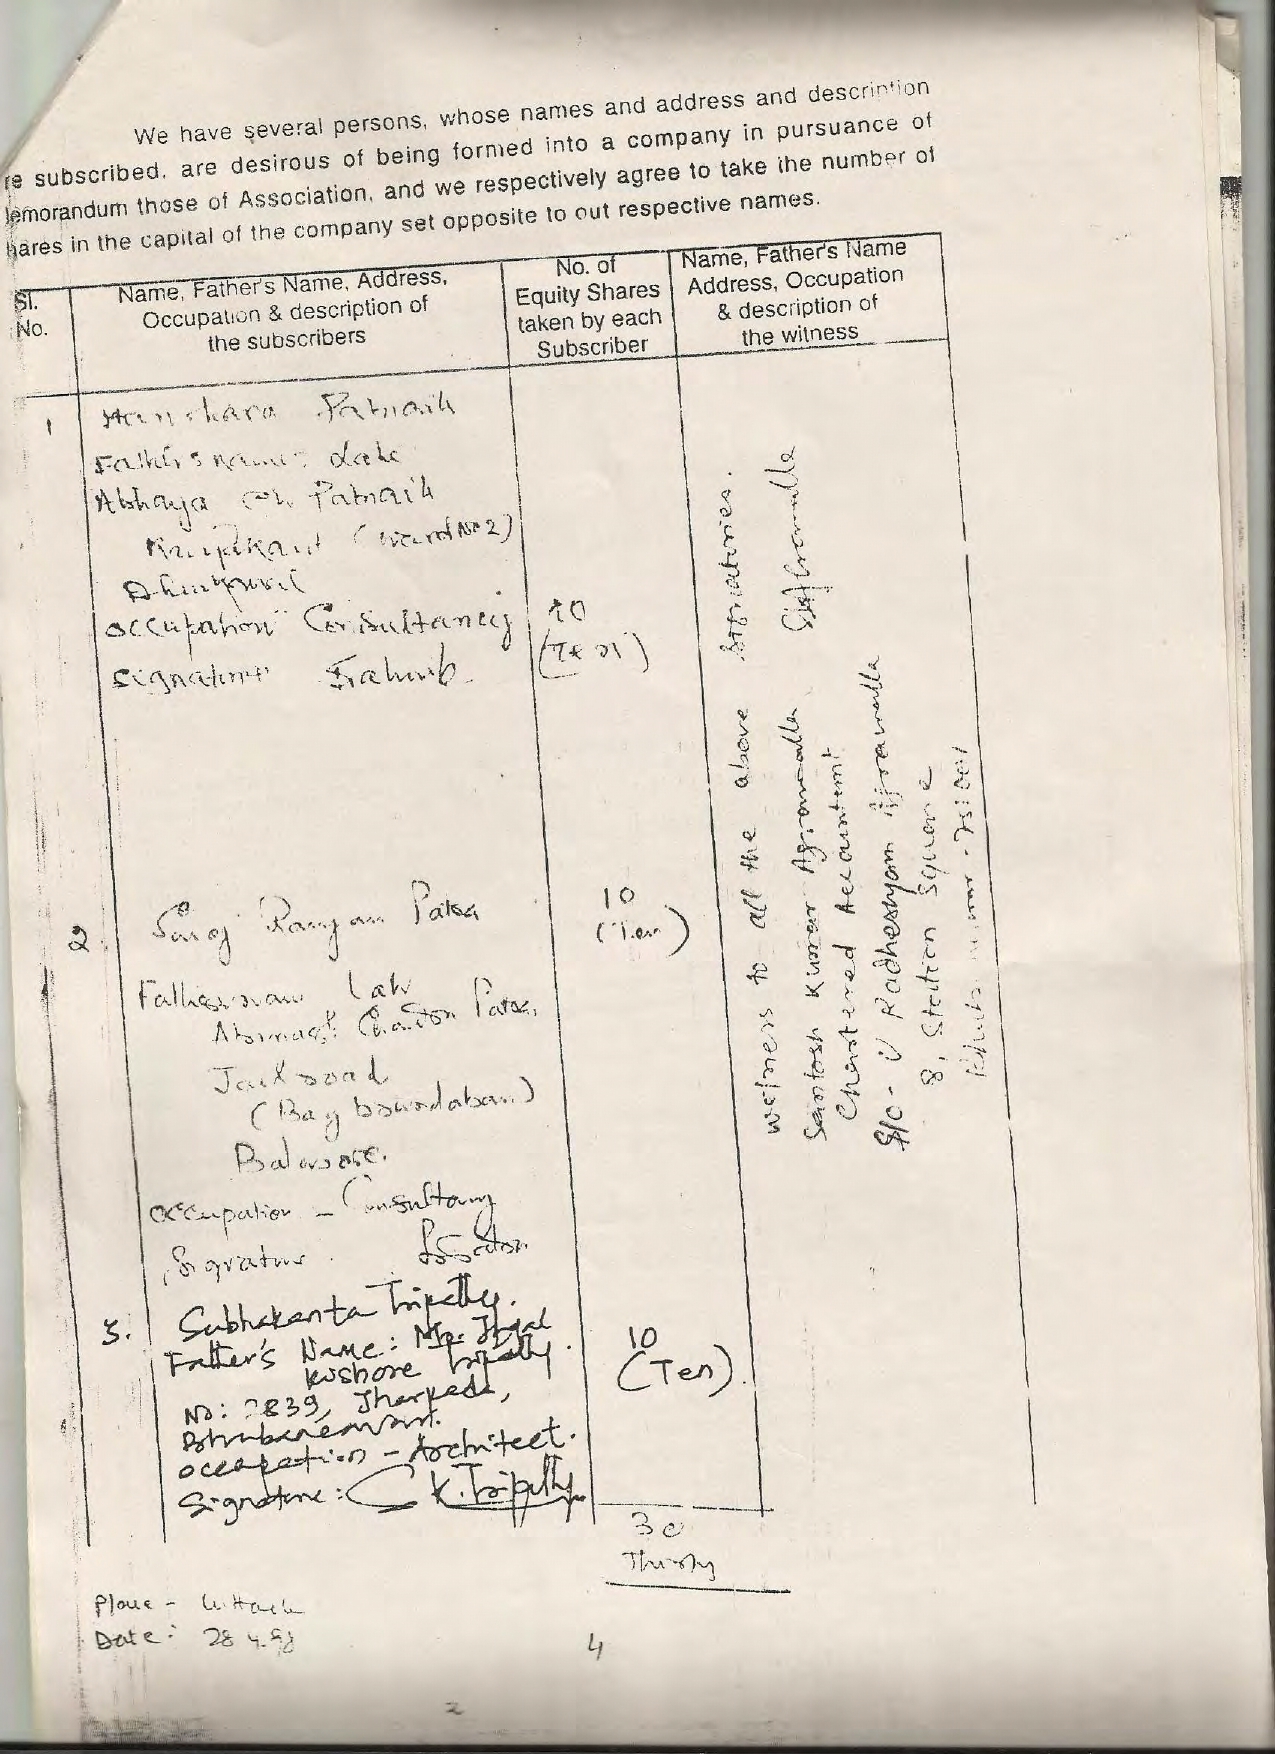 We have several persons, whose names and address and description
re subscribed, are desirous of being formed into a company in pursuance of
emorandum those of Association, and we respectively agree to take the number of
hares in the capital of the company set opposite to out respective names.
Sl. No.
Name, Father's Name, Address,
Occupation & description of
the subscribers
No. of
Equity Shares
taken by each
Subscriber
Name, Father's Name
Address, Occupation
& description of
the witness
1
Patnaik
Father's name: Late
Abhaya Ch. Patnaik
(Ward No 2)
Occupation Consultancy
Signature
10
(Ten)
2
Saroj Ranjan Patra
Fathers name Late
Chandra Patra,
Jail road
Balasore.
Occupation - Consultancy
Signature
10
(Ten)
3.
Subhakanta Tripathy.
Father's Name: Mr. Jugal
Kishore Tripathy.
No: 2839, Jharpada,
Bhubaneswar.
Occupation - Architect.
Signature: S K. Tripathy
10
(Ten).
30
Thirty
witness to all the above signatories.
Santosh Kumar Agrawalla
Chartered Accountant
S/o - Radheshyam Agrawalla
8, Station Square
751001
Place - Cuttack
Date: 28.4.98
4
2